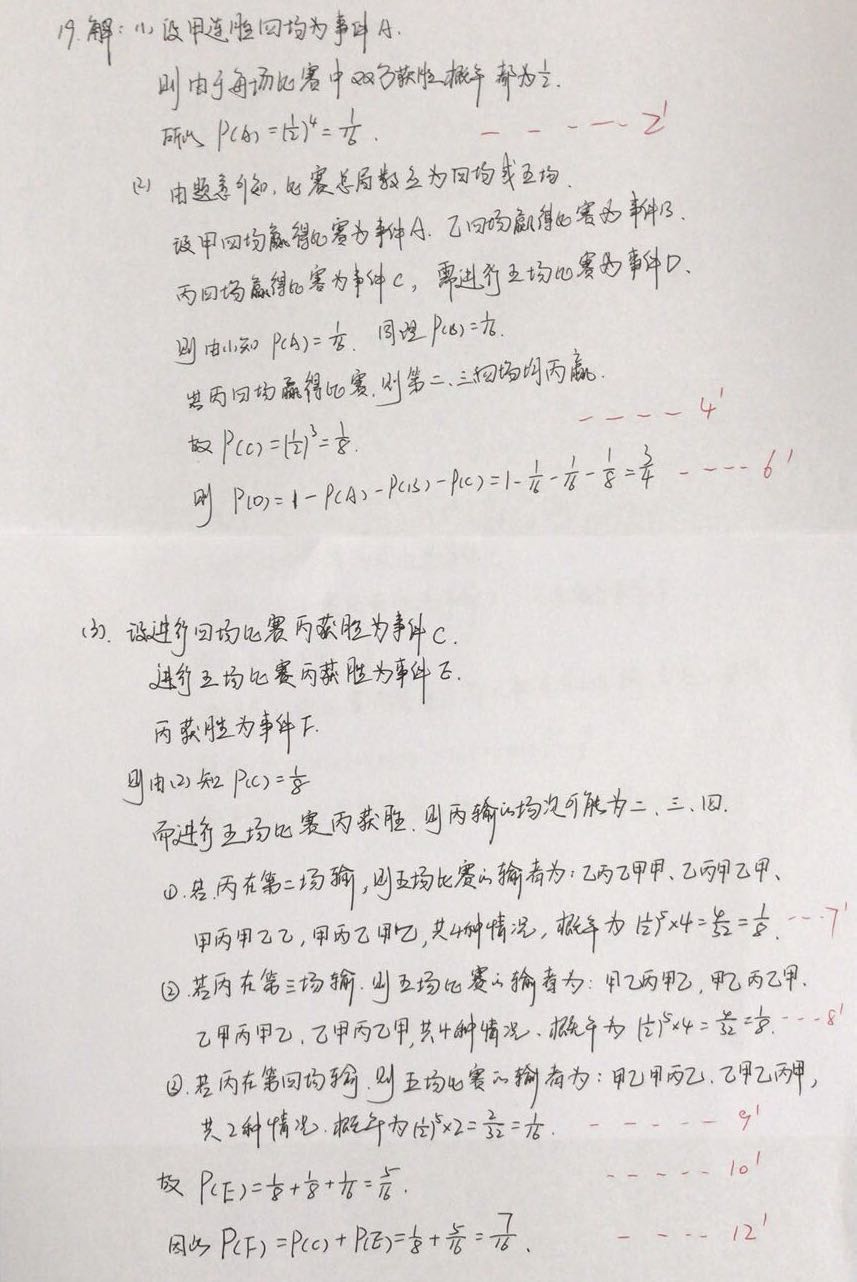 19.解：(1)设甲连胜四场为事件A.
则由于每场比赛中双方获胜概率都为1/2.
所以 P(A)=(1/2)^4=1/16. - - - - - 2'
(2) 由题意可知,比赛总局数应为四场或五场.
设甲四场赢得比赛为事件A.乙四场赢得比赛为事件B.
丙四场赢得比赛为事件C，需进行五场比赛为事件D.
则由(1)知 P(A)=1/16. 同理P(B)=1/16.
若丙四场赢得比赛.则第二、三四场均丙赢.
故 P(C)=(1/2)^3=1/8. - - - - 4'
则 P(D)=1-P(A)-P(B)-P(C)=1-1/16-1/16-1/8=3/4 - - - - 6'
(3). 设进行四场比赛丙获胜为事件C.
进行五场比赛丙获胜为事件E.
丙获胜为事件F.
则由(2)知 P(C)=1/8
而进行五场比赛丙获胜.则丙输的场次可能为二、三、四.
①.若丙在第二场输,则五场比赛的输者为：乙丙乙甲甲、乙丙甲乙甲、
甲丙甲乙乙,甲丙乙甲乙,共4种情况，概率为(1/2)^5×4=4/32=1/8. - - - 7'
②.若丙在第三场输.则五场比赛的输者为：甲乙丙甲乙,甲乙丙乙甲.
乙甲丙甲乙、乙甲丙乙甲,共4种情况、概率为(1/2)^5×4=4/32=1/8. - - - 8'
③.若丙在第四场输.则五场比赛的输者为：甲乙甲丙乙.乙甲乙丙甲,
共2种情况.概率为(1/2)^5×2=2/32=1/16. - - - - - 9'
故 P(E)=1/8+1/8+1/16=5/16. - - - - - 10'
因此P(F)=P(C)+P(E)=1/8+5/16=7/16. - - - - 12'